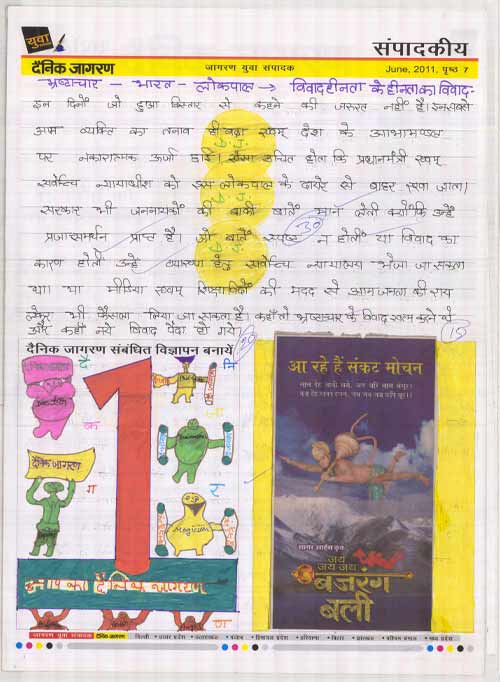 युवा
संपादकीय
दैनिक जागरण
जागरण युवा संपादक
June, 2011, पृष्ठ 7
भ्रष्टाचार - भारत - लोकपाल → विवादहीनता के हीनता का विवाद -
इन दिनों जो हुआ विस्तार से कहने की जरूरत नहीं है। इन सबसे
आम व्यक्ति का तनाव ही बढ़ा एवम् देश के आभामण्डल
पर नकारात्मक ऊर्जा हावि। ऐसा उचित होता कि प्रधानमंत्री एवम्
सर्वोच्च न्यायाधीश को इस लोकपाल के दायरे से बाहर रखा जाता।
सरकार भी जननायकों की बाकी बातें मान लेती क्योंकि उन्हें
प्रजासमर्थन प्राप्त है। जो बातें स्पष्ट न होतीं या विवाद का
कारण होतीं उन्हें व्याख्या हेतु सर्वोच्च न्यायालय भेजा जा सकता
था। या मीडिया एवम् शिक्षाविदों की मदद से आम जनता की राय
लेकर भी फैसला लिया जा सकता है। कहाँ तो भ्रष्टाचार के विवाद खत्म करने थे
और कहाँ नये विवाद पैदा हो गये।
दैनिक जागरण संबंधित विज्ञापन बनायें
दै
नि
क
जा
दैनिक जागरण
ग
र
ण
1
आपका दैनिक जागरण
आ रहे हैं संकट मोचन
नाम देह लाखों बसे, जय पति नाम बंगुर।
सागर आर्ट्स कृत
जय
जय जय
बजरंग
बली
जागरण युवा संपादक दैनिक जागरण दिल्ली • उत्तर प्रदेश • उत्तराखण्ड • पंजाब • हिमाचल प्रदेश • हरियाणा • बिहार • झारखण्ड • पश्चिम बंगाल • मध्य प्रदेश